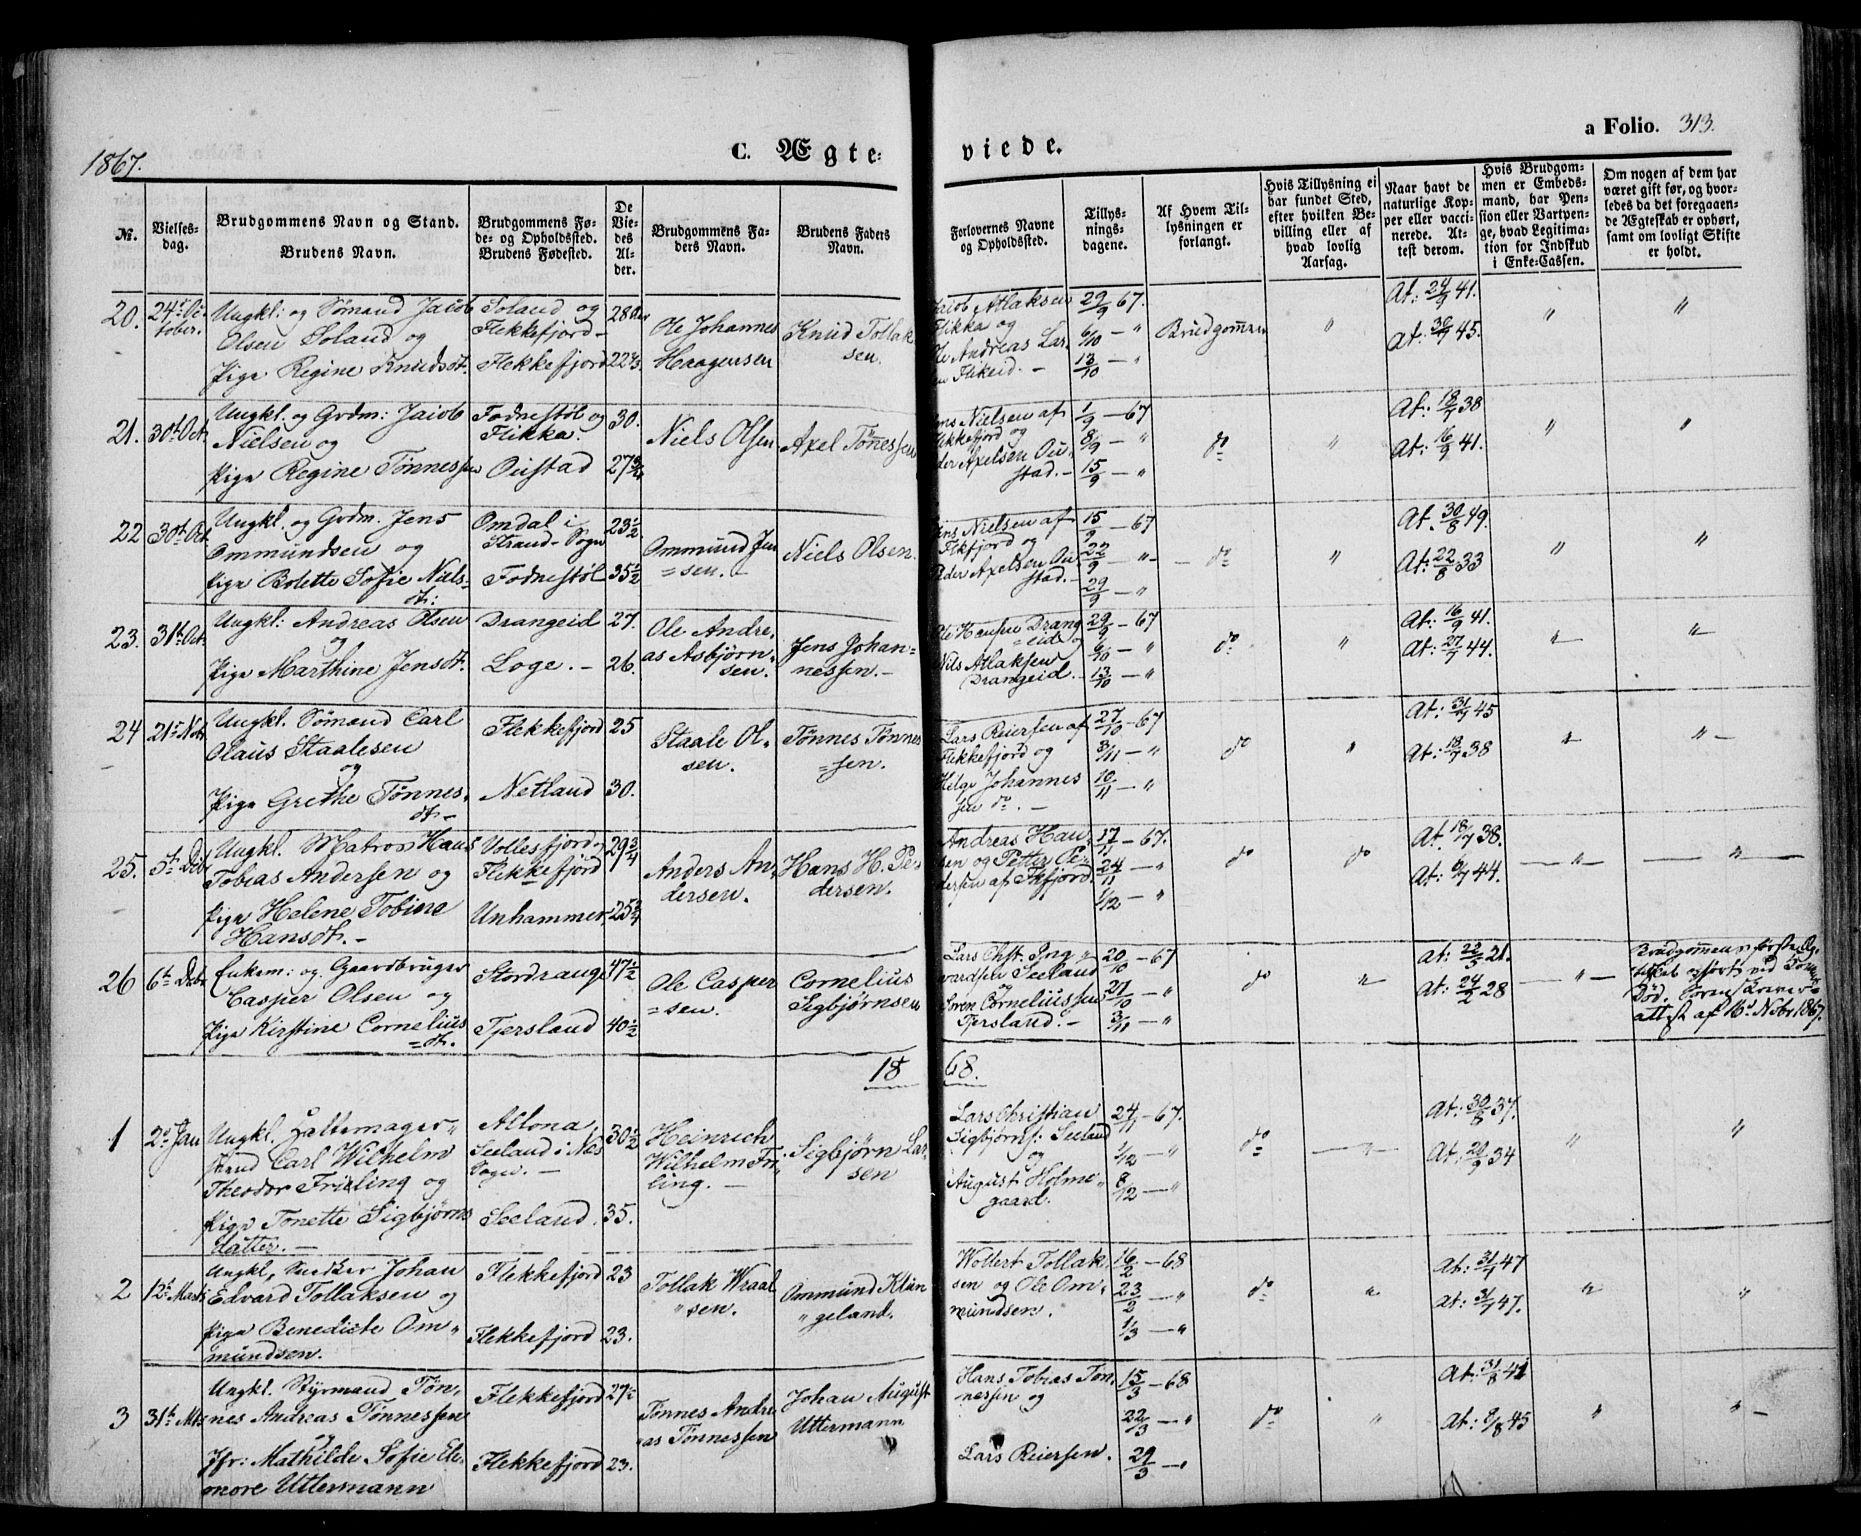 1867.
C. Ægte-
viede.
a Folio. 313.
№.
Vielses-
dag.
Brudgommens Navn og Stand.
Brudens Navn.
Brudgommens Fø-
de- og Opholdssted.
Brudens Fødested.
De
Vie-
des
Al-
der.
Brudgommens Fa-
ders Navn.
Brudens Faders
Navn.
Forlovernes Navne
og Opholdssted.
Tillys-
nings-
dagene.
Af Hvem Til-
lysningen er
forlangt.
Hvis Tillysning ei
har fundet Sted,
efter hvilken Be-
villing eller af
hvad lovlig
Aarsag.
Naar havt de
naturlige Kop-
per eller vacci-
nerede. At-
test derom.
Hvis Brudgom-
men er Embeds-
mand, har Pen-
sion eller Vartpen-
ge, hvad Legitima-
tion for Indskud
i Enke-Cassen.
Om nogen af dem har
været gift før, og hvor-
ledes da det foregaaen-
de Ægteskab er ophørt,
samt om lovligt Skifte
er holdt.
20.
24de Oc-
tober.
Ungkl: og Sømand Jacob
Olsen Soland og
Pige Regine Knudsdt.
Soland og
Flekkefjord -
Flekkefjord
28
22
Ole Johannes
Haagensen
Knud Tollak
sen.
Jacob Atlaksen
Flikka og
Ole Andreas Lar-
sen Flikeid. -
29/9 67.
6/10 - "
13/10 - "
Brudgommen
"
At: 24/9 41.
At: 30/7 45.
"
"
21.
30te Oct
Ungkl. og Grdm: Jacob
Nielsen og
Pige Regine Tønnessen
Fodnestøl og
Flikka.
Oustad
30.
27
Niels Olsen
Axel Tønnessen
Jens Nielsen af
Flekkefjord og
Peder Axelsen Ou-
stad. -
1/9 - 67
8/9 - "
15/9 - "
do
"
At: 18/7 38
At: 16/9 41.
"
"
22
30te Oct
Ungkl. og Grdm. Jens
Ommundsen og
Pige Bolette Sofie Niels-
dt:
Omdal i
Strand-Sogn
Fodnestøl
23½
35½
Ommund Jen
=sen. -
Niels Olsen.
Jens Nielsen af
Flkfjord og
Peder Axelsen Ou
stad. -
15/9 - 67
22/9 - "
29/9 - "
- do
"
At. 30/8 49.
At: 22/8 33
"
"
23.
31te Oct
Ungkl: Andreas Olsen
og
Pige Marthine Jensdt.
Drangeid
Loge. -
27.
26.
Ole Andre-
as Asbjørn-
sen.
Jens Johan-
nessen. -
Ole Hansen Drang
=eid og
Nils Atlaksen
Drangeid.
29/9 - 67
6/10 - "
13/10 - "
do
"
At: 16/9 41.
At: 27/7 44.
"
"
24
21de Nov
Ungkl. Sømand Carl
Olaus Staalesen
og
Pige Grethe Tønnes-
dt. -
Flekkefjord
Netland
25
30.
Staale Ol-
sen.
Tønnes Tønnes
=sen.
Lars Reiersen af
Flekkefjord og
Helge Johannes
sen do. -
27/10 - 67
3/11 - "
10/11 - "
do
"
At: 31/7 45
At: 18/7 38
"
"
25.
5te Debr
Ungkl. Matros Hans
Tobias Andersen og
Pige Helene Tobine
Hansdt. -
Vollesfjord
Flekkefjord
Unhammer
29¾
25¾
Anders An-
dersen.
Hans H. Pe-
dersen.
Andreas Han-
sen og Petter Pe-
dersen af Fkfjord.
17/11 - 67.
24/11 - "
1/12 - "
do
do
At. 18/7 38.
At: 9/7 44.
"
"
26
6te Debr
Enkem: og Gaardbruger
Casper Olsen og
Pige Kirstine Cornelius
=dt.
Stordrange
Tjersland
47½
40½
Ole Casper
=sen.
Cornelius
Sigbjørnsen
Lars Chst. Ing-
vardsen Seeland
og
Søren Corneliussen
Tjersland. -
20/10 - 67
27/10 - "
3/11 - "
do
"
At: 22/5 21.
At: 24/2 28
"
Brudgommens første Æg-
teskab ophørt ved Kone
Død.
attest af 16de Nobr 1867.
1868.
1
2den Jan
Ungkl.
svend Carl Wilhelm
Theodor Frieling og
Pige Tonette Sigbjørns
datter. -
Altona,
Seeland i Næs
Sogn. -
Seeland.
30½
35.
Heinrich
Wilhelm Fri-
ling. -
Sigbjørn Lar-
sen
Lars Christian
Sigbjørns: Seeland
og
August Holme-
gaard.
24/11 - 67.
1/12 - "
8/12 - "
do
"
At: 30/8 37.
At: 20/9 34
"
"
2
12te Marts
Ungkl, Snedker Johan
Edvard Tollaksen og
Pige Benedicte Om-
mundsen.
Flekkefjord
Flekkefjord
23
23.
Tollak Wraal
"sen.
Ommund Klun
"geland.
Wollert Tollak-
sen og Ole Om-
mundsen.
16/2 - 68
23/2 - "
1/3 - "
do
"
At: 31/7 47
At: 31/7 47.
"
"
3
31te Mts
Ungkl. Styrmand Tøn-
nes Andreas Tønnessen
og
Jfr: Mathilde Sofie Ele-
nore Uttermann
Flekkefjord
Flekkefjord
27½
23.
Tønnes Andre
"as Tønnessen
Johan August
Uttermann
Hans Tobias Tøn-
nessen og
Lars Reiersen.
15/3 - 68
22/3 - "
29/3 - "
do
"
At: 31/8 41
At: 9/8 45
"
"